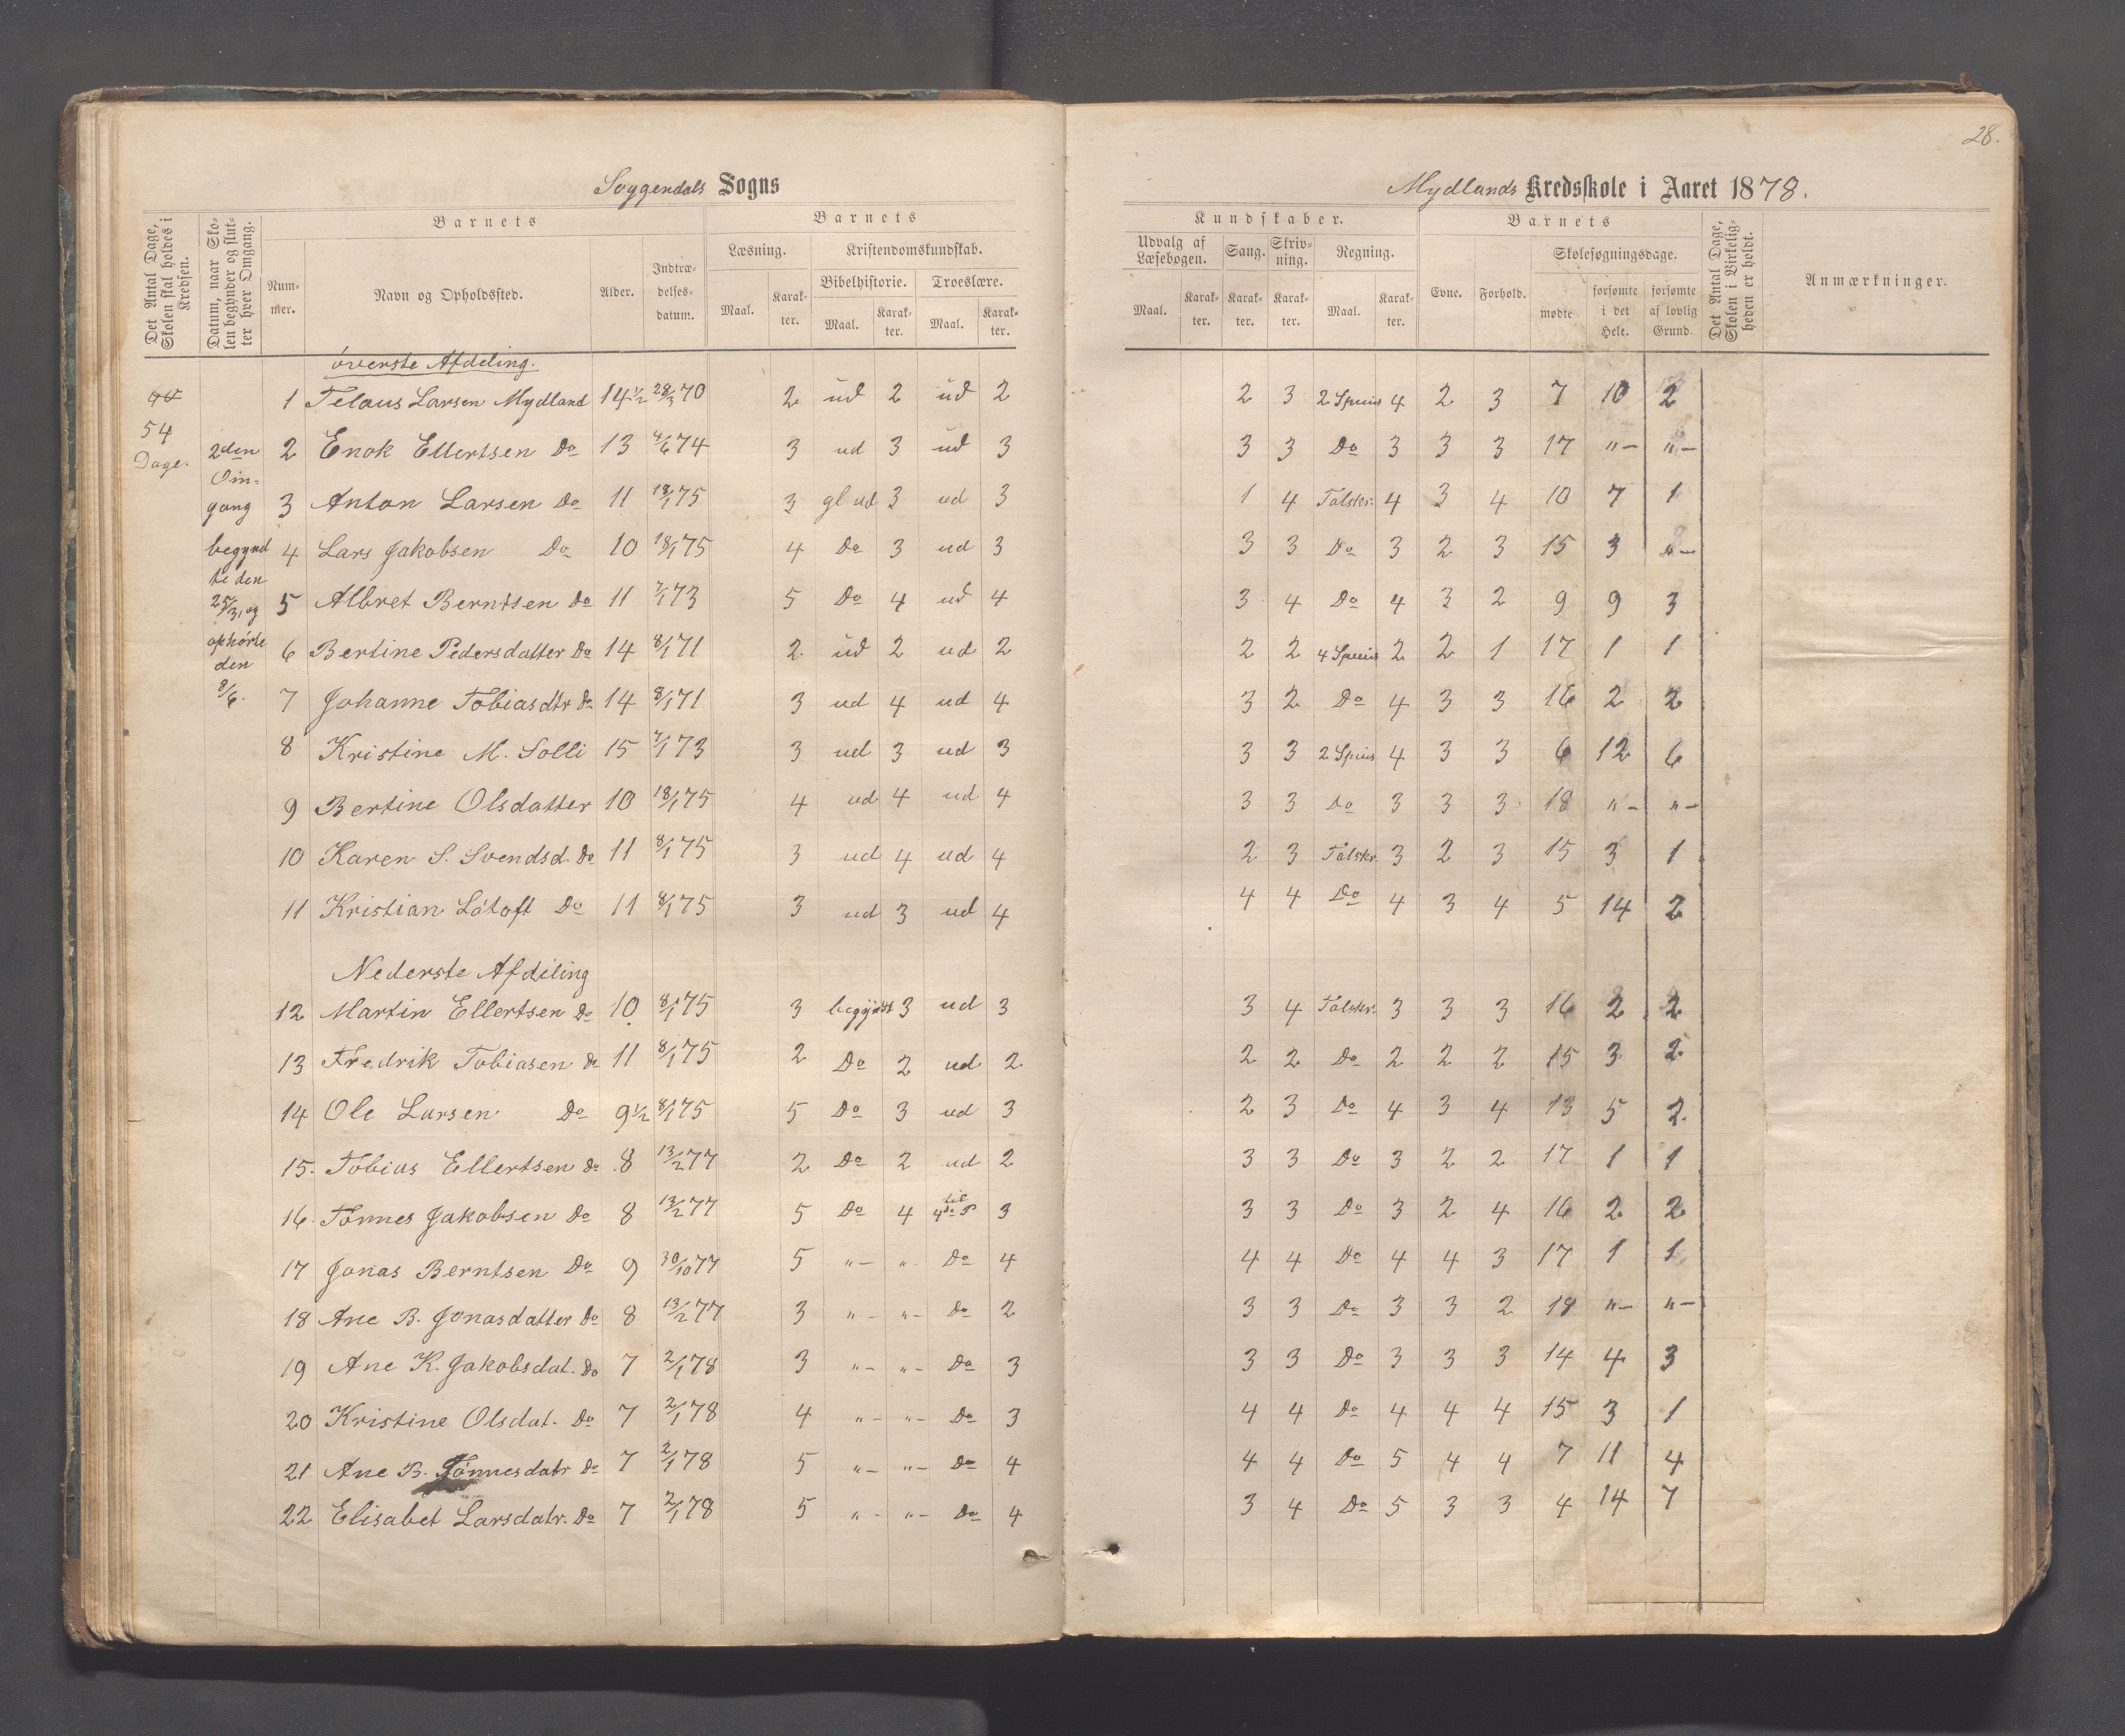 28.
Soggendals Sogns
Mydlands Kredsskole i Aaret 1878.
Det Antal Dage, Skolen skal holdes i Kredsen.
Datum, naar Skolen begynder og slutter hver Omgang.
Barnets
Nummer.
Navn og Opholdssted.
Alder.
Indtrædelsesdatum.
Barnets
Læsning.
Maal.
Karakter.
Kristendomskundskab.
Bibelhistorie.
Maal.
Karakter.
Troeslære.
Maal.
Karakter.
Kundskaber.
Udvalg af Læsebogen.
Maal.
Karakter.
Sang.
Karakter.
Skrivning.
Karakter.
Regning.
Maal.
Karakter.
Barnets
Evne.
Forhold.
Skolesøgningsdage.
mødte
forsømte i det Hele.
forsømte af lovlig Grund.
Det Antal Dage, Skolen i Virkeligheden er holdt.
Anmærkninger.
54
Dage.
2den
Om=
gang
begynd
te den
25/3, og
ophørte
den
8/6.
øverste Afdeling.
1 Telaus Larsen Mydland 14 1/2 28/3 70 2 ud 2 ud 2 2 3 2 Spcies 4 2 3 7 10 2
2 Enok Ellertsen Do 13 4/6 74 3 ud 3 ud 3 3 3 Do 3 3 3 17 "— "—
3 Anton Larsen Do 11 18/1 75 3 gl ud 3 ud 3 1 4 Talskr. 4 3 4 10 7 1
4 Lars Jakobsen Do 10 18/1 75 4 Do 3 ud 3 3 3 Do 3 2 3 15 3 "—
5 Albret Berntsen Do 11 7/1 73 5 Do 4 ud 4 3 4 Do 4 3 2 9 9 3
6 Bertine Pedersdatter Do 14 8/1 71 2 ud 2 ud 2 2 2 4 Specis 2 2 1 17 1 1
7 Johanne Tobiasdtr Do 14 8/1 71 3 ud 4 ud 4 3 2 Do 4 3 3 16 2 2
8 Kristine M. Solli 15 7/1 73 3 ud 3 ud 3 3 3 2 Spcis 4 3 3 6 12 6
9 Bertine Olsdatter 10 18/1 75 4 ud 4 ud 4 3 3 Do 3 3 3 18 "— "—
10 Karen S. Svendsd. Do 11 8/1 75 3 ud 4 ud 4 2 3 Talskr. 3 2 3 15 3 1
11 Kristian Låtoft Do 11 8/1 75 3 ud 3 ud 4 4 4 Do 4 3 4 5 14 2
Nederste Afdiling
12 Martin Ellertsen Do 10 8/1 75 3 begyndt 3 ud 3 3 4 Talskr. 3 3 3 16 2 2
13 Fredrik Tobiasen Do 11 8/1 75 2 Do 2 ud 2 2 2 Do 2 2 2 15 3 2
14 Ole Larsen Do 9 1/2 8/1 75 5 Do 3 ud 3 2 3 Do 4 3 4 13 5 2
15. Tobias Ellertsen Do 8 13/2 77 2 Do 2 ud 2 3 3 Do 3 2 2 17 1 1
16. Tønnes Jakobsen Do 8 13/2 77 5 Do 4 til 4de P 3 3 3 Do 3 2 4 16 2 2
17 Jonas Berntsen Do 9 30/10 77 5 "— " Do 4 4 4 Do 4 4 3 17 1 1
18 Ane B. Jonasdatter Do 8 13/2 77 3 "— "— Do 2 3 3 Do 3 3 2 18 "— "—
19 Ane K. Jakobsdat. Do 7 2/1 78 3 "— "— Do 3 3 3 Do 3 3 3 14 4 3
20 Kristine Olsdat. Do 7 2/1 78 4 "— "— Do 3 4 4 Do 4 4 4 15 3 1
21 Ane B. Tønnesdatr Do 7 2/1 78 5 "— "— Do 4 4 4 Do 5 4 4 7 11 4
22 Elisabet Larsdatr. Do 7 2/1 78 5 "— "— Do 4 3 4 Do 5 3 3 4 14 7